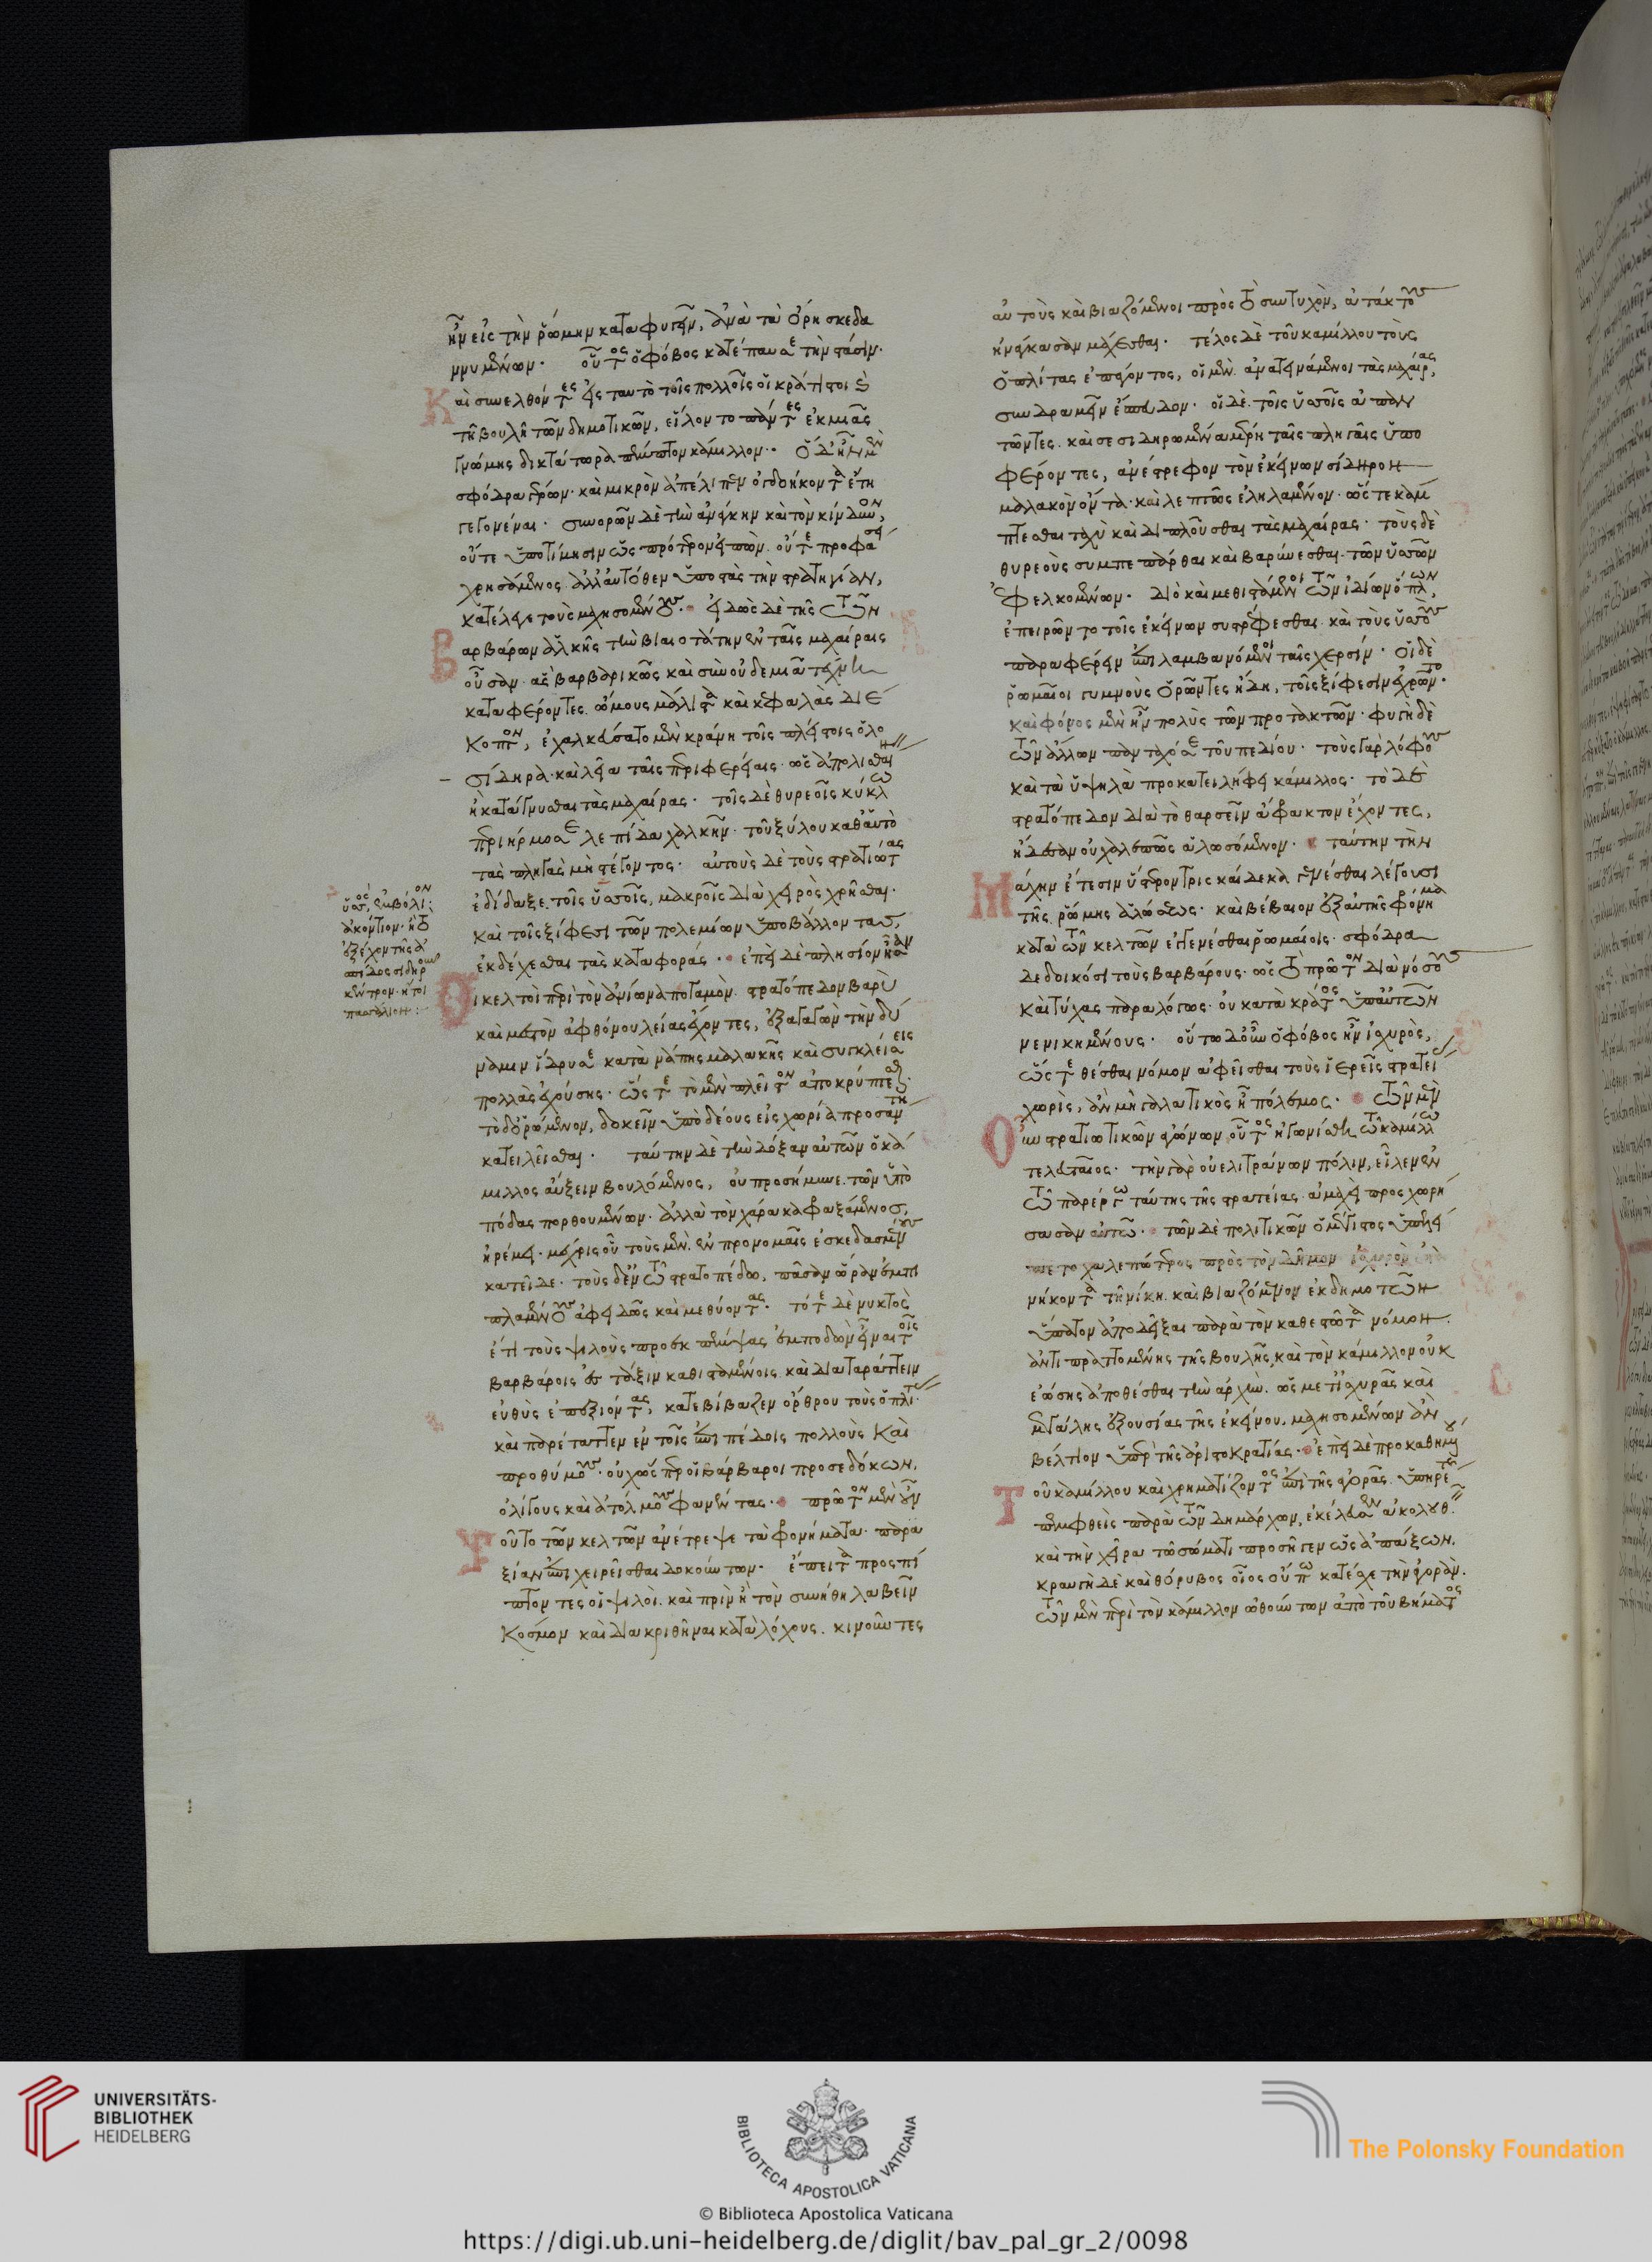 ἦν εἰς τὴν ῥώμην καταφυγεῖν, ἀνὰ τὰ ὄρη σκεδα
ννυμένων. οὗτος ὁ φόβος κατέπαυσε τὴν στάσιν.
Καὶ συνελθόντες εἰς ταυτὸ τοῖς πολλοῖς οἱ κράτιστοι καὶ
τῇ βουλῇ τῶν δημοτικῶν, εἵλοντο πάντες ἐκ μιᾶς
γνώμης δικτάτωρα πέμπτον κάμιλλον. ὁ δ' ἦν μὲν
σφόδρα γέρων. καὶ μικρὸν ἀπέλιπεν ὀγδοήκοντα ἔτη
γεγονέναι. συνορῶν δὲ τὴν ἀνάγκην καὶ τὸν κίνδυνον,
οὔτε ὑποτίμησιν ὡς πρότερον εἰπὼν. οὔτε προφάσει
χρησάμενος. ἀλλ' αὐτόθεν ὑποστὰς τὴν στρατηγίαν,
κατέλεγε τοὺς μαχησομένους. εἰδὼς δὲ τῆς τῶν
Βαρβάρων ἀλκῆς τὴν βιαιοτάτην ἐν ταῖς μαχαίραις
οὖσαν. ἃς βαρβαρικῶς καὶ σὺν οὐδεμιᾷ τέχνῃ
καταφέροντες. ὤμους μάλιστα καὶ κεφαλὰς διέ
κοπτον, ἐχαλκεύσατο μὲν κράνη τοῖς πλείστοις ὅλο
σίδηρα. καὶ λεῖα ταῖς περιφερείαις. ὡς ἀπολισθαίνειν
ἢ κατάγνυσθαι τὰς μαχαίρας. τοῖς δὲ θυρεοῖς κύκλῳ
περιήρμοσε λεπίδα χαλκῆν. τοῦ ξύλου καθ' αὑτὸ
τὰς πληγὰς μὴ στέγοντος. αὐτοὺς δὲ τοὺς στρατιώτας
ἐδίδαξε τοῖς ὑσσοῖς, μακροῖς διὰ χειρὸς χρῆσθαι.
καὶ τοῖς ξίφεσι τῶν πολεμίων ὑποβάλλοντας,
ἐκδέχεσθαι τὰς καταφοράς. ἐπεὶ δὲ πλησίον ἦσαν
Οἱ κελτοὶ περὶ τὸν ἀνίωνα ποταμὸν. στρατόπεδον βαρὺ
καὶ μεστὸν ἀφθόνου λείας ἔχοντες, ἐξαγαγὼν τὴν δύ
ναμιν ἵδρυσε κατὰ νάπης μαλακῆς καὶ συγκλείσεις
πολλὰς ἐχούσης. ὥστε τὸ μὲν πλεῖστον ἀποκρύπτεσθαι.
τὸ δ' ὁρώμενον, δοκεῖν ὑπὸ δέους εἰς χωρία προσάντη
κατειλεῖσθαι. ταύτην δὲ τὴν δόξαν αὐτῶν ὁ κά
μιλλος αὔξειν βουλόμενος, οὐ προσήμυνε τῶν ὑπὸ
πόδας πορθουμένων. ἀλλὰ τὸν χάρακα φραξάμενος,
ἠρέμει. μέχρις οὗ τοὺς μὲν. ἐν προνομαῖς ἐσκεδασμένους
κατεῖδε. τοὺς δ' ἐν τῷ στρατοπέδῳ, πᾶσαν ὥραν ἐμπι
πλαμένους ἀφειδῶς καὶ μεθύοντας. τότε δὲ νυκτὸς
ἔτι τοὺς ψιλοὺς προσκπέμψας ἐμποδὼν εἶναι τοῖς
βαρβάροις εἰς τάξιν καθισταμένοις. καὶ διαταράττειν
εὐθὺς ἐπεξιόντας, κατεβίβαζεν ὄρθρου τοὺς ὁπλίτας.
καὶ παρέταττεν ἐν τοῖς ἐπιπέδοις πολλοὺς καὶ
προθύμους. οὐχ ὥσπερ οἱ βάρβαροι προσεδόκων.
ὀλίγους καὶ ἀτόλμους φανέντας. πρῶτον μὲν οὖν
Τοῦτο τῶν κελτῶν ἀνέτρεψε τὰ φρονήματα. παρα
ξίαν ἐπιχειρεῖσθαι δοκούντων. ἔπειτα προσπί
πτοντες οἱ ψιλοὶ. καὶ πρὶν ἢ τὸν συνήθη λαβεῖν
Κόσμον καὶ διακριθῆναι κατὰ λόχους. κινοῦντες
ὑσσός, ἐμβόλιον:
ἀκόντιον. ἢ τὸ
ἐξέχον τῆς ἀ
σπίδος σιδηροῦν
κέντρον. ἤτοι
πασσάλιον:
αὐτοὺς καὶ βιαζόμενοι πρὸς τὸ συντυχὸν, ἀτάκτους
ἠνάγκασαν μάχεσθαι. τέλος δὲ τοῦ καμίλλου τοὺς
ὁπλίτας ἐπάγοντος, οἱ μὲν. ἀνατεινάμενοι τὰς μαχαίρας,
συνδραμεῖν ἔσπευδον. οἱ δὲ. τοῖς ὑσσοῖς ἀπαν
τῶντες. καὶ σεσιδηρωμένα μέρη ταῖς πληγαῖς ὑπο
φέροντες, ἀνέστρεφον τὸν ἐκείνων σίδηρον
μαλακὸν ὄντα. καὶ λεπτῶς ἐληλαμένον. ὥστε κάμ
πτεσθαι ταχὺ καὶ διπλοῦσθαι τὰς μαχαίρας. τοὺς δὲ
θυρεοὺς συμπεπάρθαι καὶ βαρύνεσθαι. τῶν ὑσσῶν
ἐφελκομένων. διὸ καὶ μεθιστάμενοι τῶν ἰδίων ὅπλων,
ἐπειρῶντο τοῖς ἐκείνων συστρέφεσθαι. καὶ τοὺς ὑσσοὺς
παραφέρειν ἐπιλαμβανόμενοι ταῖς χερσίν. οἱ δὲ
ῥωμαῖοι γυμνοὺς ὁρῶντες ἤδη, τοῖς ξίφεσιν ἐχρῶντο.
καὶ φόνος μὲν ἦν πολὺς τῶν προτάκτων. φυγὴ δὲ
τῶν ἄλλων πανταχόσε τοῦ πεδίου. τοὺς γὰρ λόφους
καὶ τὰ ὑψηλὰ προκατειλήφει κάμιλλος. τὸ δὲ
στρατόπεδον διὰ τὸ θαρσεῖν ἄφρακτον ἔχοντες,
ᾔδεσαν οὐ χαλεπῶς ἁλωσόμενον. ταύτην τὴν
Μάχην ἔτεσιν ὕστερον τρισκαίδεκα γενέσθαι λέγουσι
τῆς ῥώμης ἁλώσεως. καὶ βέβαιον ἐξ αὐτῆς φρόνημα
κατὰ τῶν κελτῶν ἐγγενέσθαι ῥωμαίοις. σφόδρα
δεδοικόσι τοὺς βαρβάρους. ὡς τὸ πρῶτον διὰ νόσους
καὶ τύχας παραλόγως. οὐ κατὰ κράτος ὑπ' αὐτῶν
νενικημένους. οὕτω δ' οὖν ὁ φόβος ἦν ἰσχυρὸς,
ὥστε θέσθαι νόμον ἀφεῖσθαι τοὺς ἱερεῖς στρατείας
χωρὶς, ἂν μὴ γαλατικὸς ᾖ πόλεμος. τῶν μὲν
Οὖν στρατιωτικῶν ἀγώνων οὗτος ἠγωνίσθη τῷ καμίλλῳ
τελευταῖος. τὴν γὰρ οὐελιτράνων πόλιν, εἷλεν ἐν
τῷ παρέργῳ ταύτης τῆς στρατείας. ἀμαχεὶ προσχωρή
σασαν αὐτῷ. τῶν δὲ πολιτικῶν ὁ μέγιστος ὑπελεί
πετο χαλεπώτερος πρὸς τὸν δῆμον ἰσχυρὸν
νήκοντα τῇ νίκῃ. καὶ βιαζόμενον ἐκ δημοτῶν
ὕπατον ἀποδεῖξαι παρὰ τὸν καθεστῶτα νόμον.
ἀντιπραττομένης τῆς βουλῆς, καὶ τὸν κάμιλλον οὐκ
ἐώσης ἀποθέσθαι τὴν ἀρχὴν. ὡς μετ' ἰσχυρᾶς καὶ
μεγάλης ἐξουσίας τῆς ἐκείνου. μαχησομένων ἂν
βέλτιον ὑπὲρ τῆς ἀριστοκρατίας. ἐπεὶ δὲ προκαθημένου
Τοῦ καμίλλου καὶ χρηματίζοντος ἐπὶ τῆς ἀγορᾶς. ὑπηρέτης
πεμφθεὶς παρὰ τῶν δημάρχων, ἐκέλευσεν ἀκολουθεῖν.
καὶ τὴν χεῖρα τῷ σώματι προσῆγεν ὡς ἀπάξων.
κραυγὴ δὲ καὶ θόρυβος οἷος οὔπω κατέσχε τὴν ἀγορὰν.
τῶν μὲν περὶ τὸν κάμιλλον ὠθούντων ἀπὸ τοῦ βήματος
UNIVERSITÄTS-
BIBLIOTHEK
HEIDELBERG
BIBLIOTECA APOSTOLICA VATICANA
The Polonsky Foundation
© Biblioteca Apostolica Vaticana
https://digi.ub.uni-heidelberg.de/diglit/bav_pal_gr_2/0098